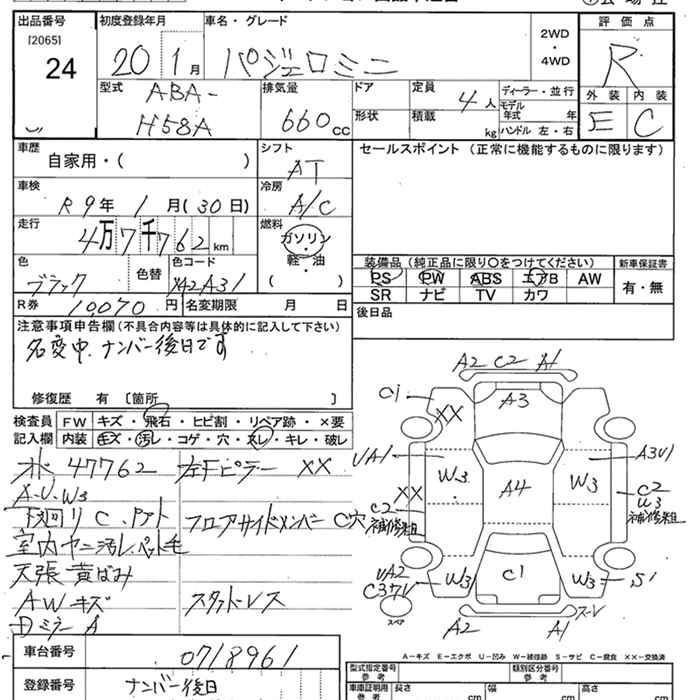 出品番号 初度登録年月 車名・グレード 評価点
[2065]
24 20 1月 パジェロミニ 2WD・4WD R
型式 排気量 ドア 定員 ディーラー・並行 外装 内装
ABA- 4人 モデル年式 年
H58A 660cc 形状 積載 kg ハンドル 左・右 E C
車歴 シフト セールスポイント(正常に機能するものに限ります)
自家用・( ) AT
車検 冷房
R9年 1月(30日) A/C
走行 燃料
4万7千762km ガソリン・軽・油
( )
色 色替 色コード 装備品(純正品に限り〇をつけてください) 新車保証書
ブラック X42 A31 PS PW ABS エアB AW 有・無
SR ナビ TV カワ
R券 10070円 名変期限 月 日 後日品
注意事項申告欄(不具合内容等は具体的に記入して下さい)
名変中.ナンバー後日です
修復歴 有 [箇所 ]
検査員 FW キズ・飛石・ヒビ割・リペア跡・×要
記入欄 内装 キズ・汚レ・コゲ・穴・スレ・キレ・破レ
水 47762 左Fピラー XX
A.U.W3
下廻り C.Pアト フロアサイドメンバー C穴
室内ヤニ汚レ.ペット毛
天張黄ばみ
AWキズ スタッドレス
Dミラー A
A2 C2 A1
C1 XX A3
UA1 W3 A4 W3 A3U1
XX C2 補修粗 C2 U3 補修粗
UA2 W3 C1 W3 S1
スペア A2 A1 スーレ
A-キズ E-エクボ U-凹み W-補修跡 S-サビ C-腐食 XX-交換済
車台番号 0718961
登録番号 ナンバー後日
型式指定番号 参考 類別区分番号 参考
車庫証明用 参考 長さ cm 幅 cm 高さ cm